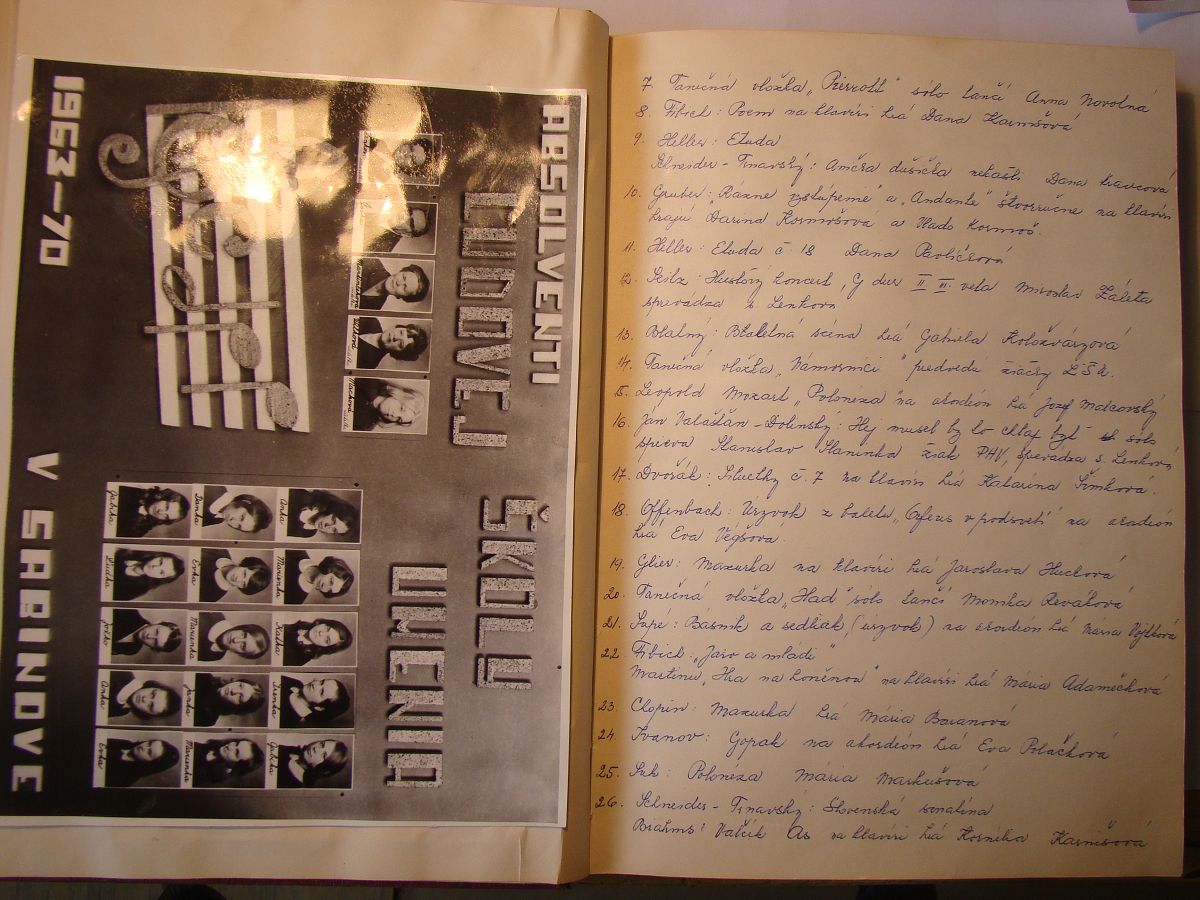 ABSOLVENTI
ĽUDOVEJ
ŠKOLY
UMENIA
V SABINOVE
1963-70
Marta
Anka
Danka
Gabika
Marienka
Evka
Ľudka
Katka
Marienka
Jožko
Irenka
Janka
Anka
Gabika
Marienka
Evka
7. Tanečná vložka „Pierott" sólo tančí Anna Novotná
8. Fibich: Poem na klavíri hrá Dana Karnišová
9. Heller: Etuda
Schneider-Trnavský: Anička dušička nekašli Dana Kravcová
10. Gruber: „Rázne vystúpenie" a „Andante" štvorručne na klavíri
hrajú Darina Kosmošová a Vlado Kosmoš.
11. Heller: Etuda č 18 Dana Pavličková
12. Seitz: Husľový koncert G dur II III. veta Miroslav Záleta
sprevádza s. Lenková
13. Blatný: Baletná scéna hrá Gabriela Koložváryová
14. Tanečná vložka „Námorníci" predvedú žiačky ĽŠU.
15. Leopold Mozart „Polonéza" na akordeón hrá Jozef Matcovský
16. Ján Valašťan-Dolinský: Hej musel by to chlap byť sólo
spieva Stanislav Slaninka žiak PHV, sprevádza s. Lenková
17. Dvořák: Siluetky č. 7 na klavíri hrá Katarína Šimková.
18. Offenbach: Úryvok z baletu „Orfeus v podsvetí" na akordeón
hrá Eva Végšová.
19. Glier: Mazurka na klavíri hrá Jaroslava Hucková
20. Tanečná vložka „Had" sólo tančí Monika Reváková
21. Supé: Básnik a sedliak (úryvok) na akordeón hrá Mária Vojtková
22. Fibich: „Jaro a mládí"
Martinu „Hra na honěnou" na klavíri hrá Mária Adamečková
23. Chopin: Mazurka hrá Mária Baranová
24. Ivanov: Gopak na akordeón hrá Eva Polačková
25. Suk: Polonéza Mária Markušová
26. Schneider-Trnavský: Slovenská sonatína
Brahms: Valčík As na klavíri hrá Kornélia Karnišová